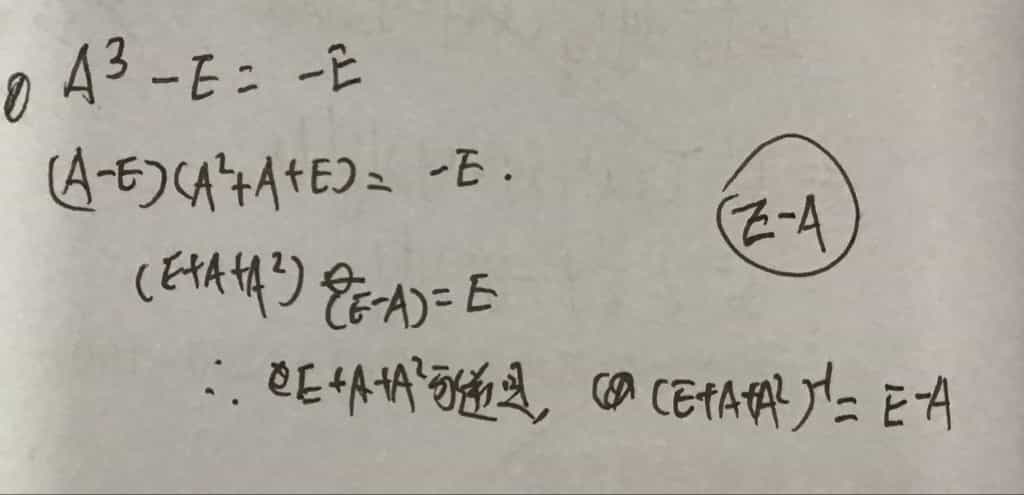 A³ - E = -E
(A-E)(A²+A+E) = -E.
E-A
(E+A+A²)(E-A) = E
∴ E+A+A²可逆, (E+A+A²)⁻¹ = E-A